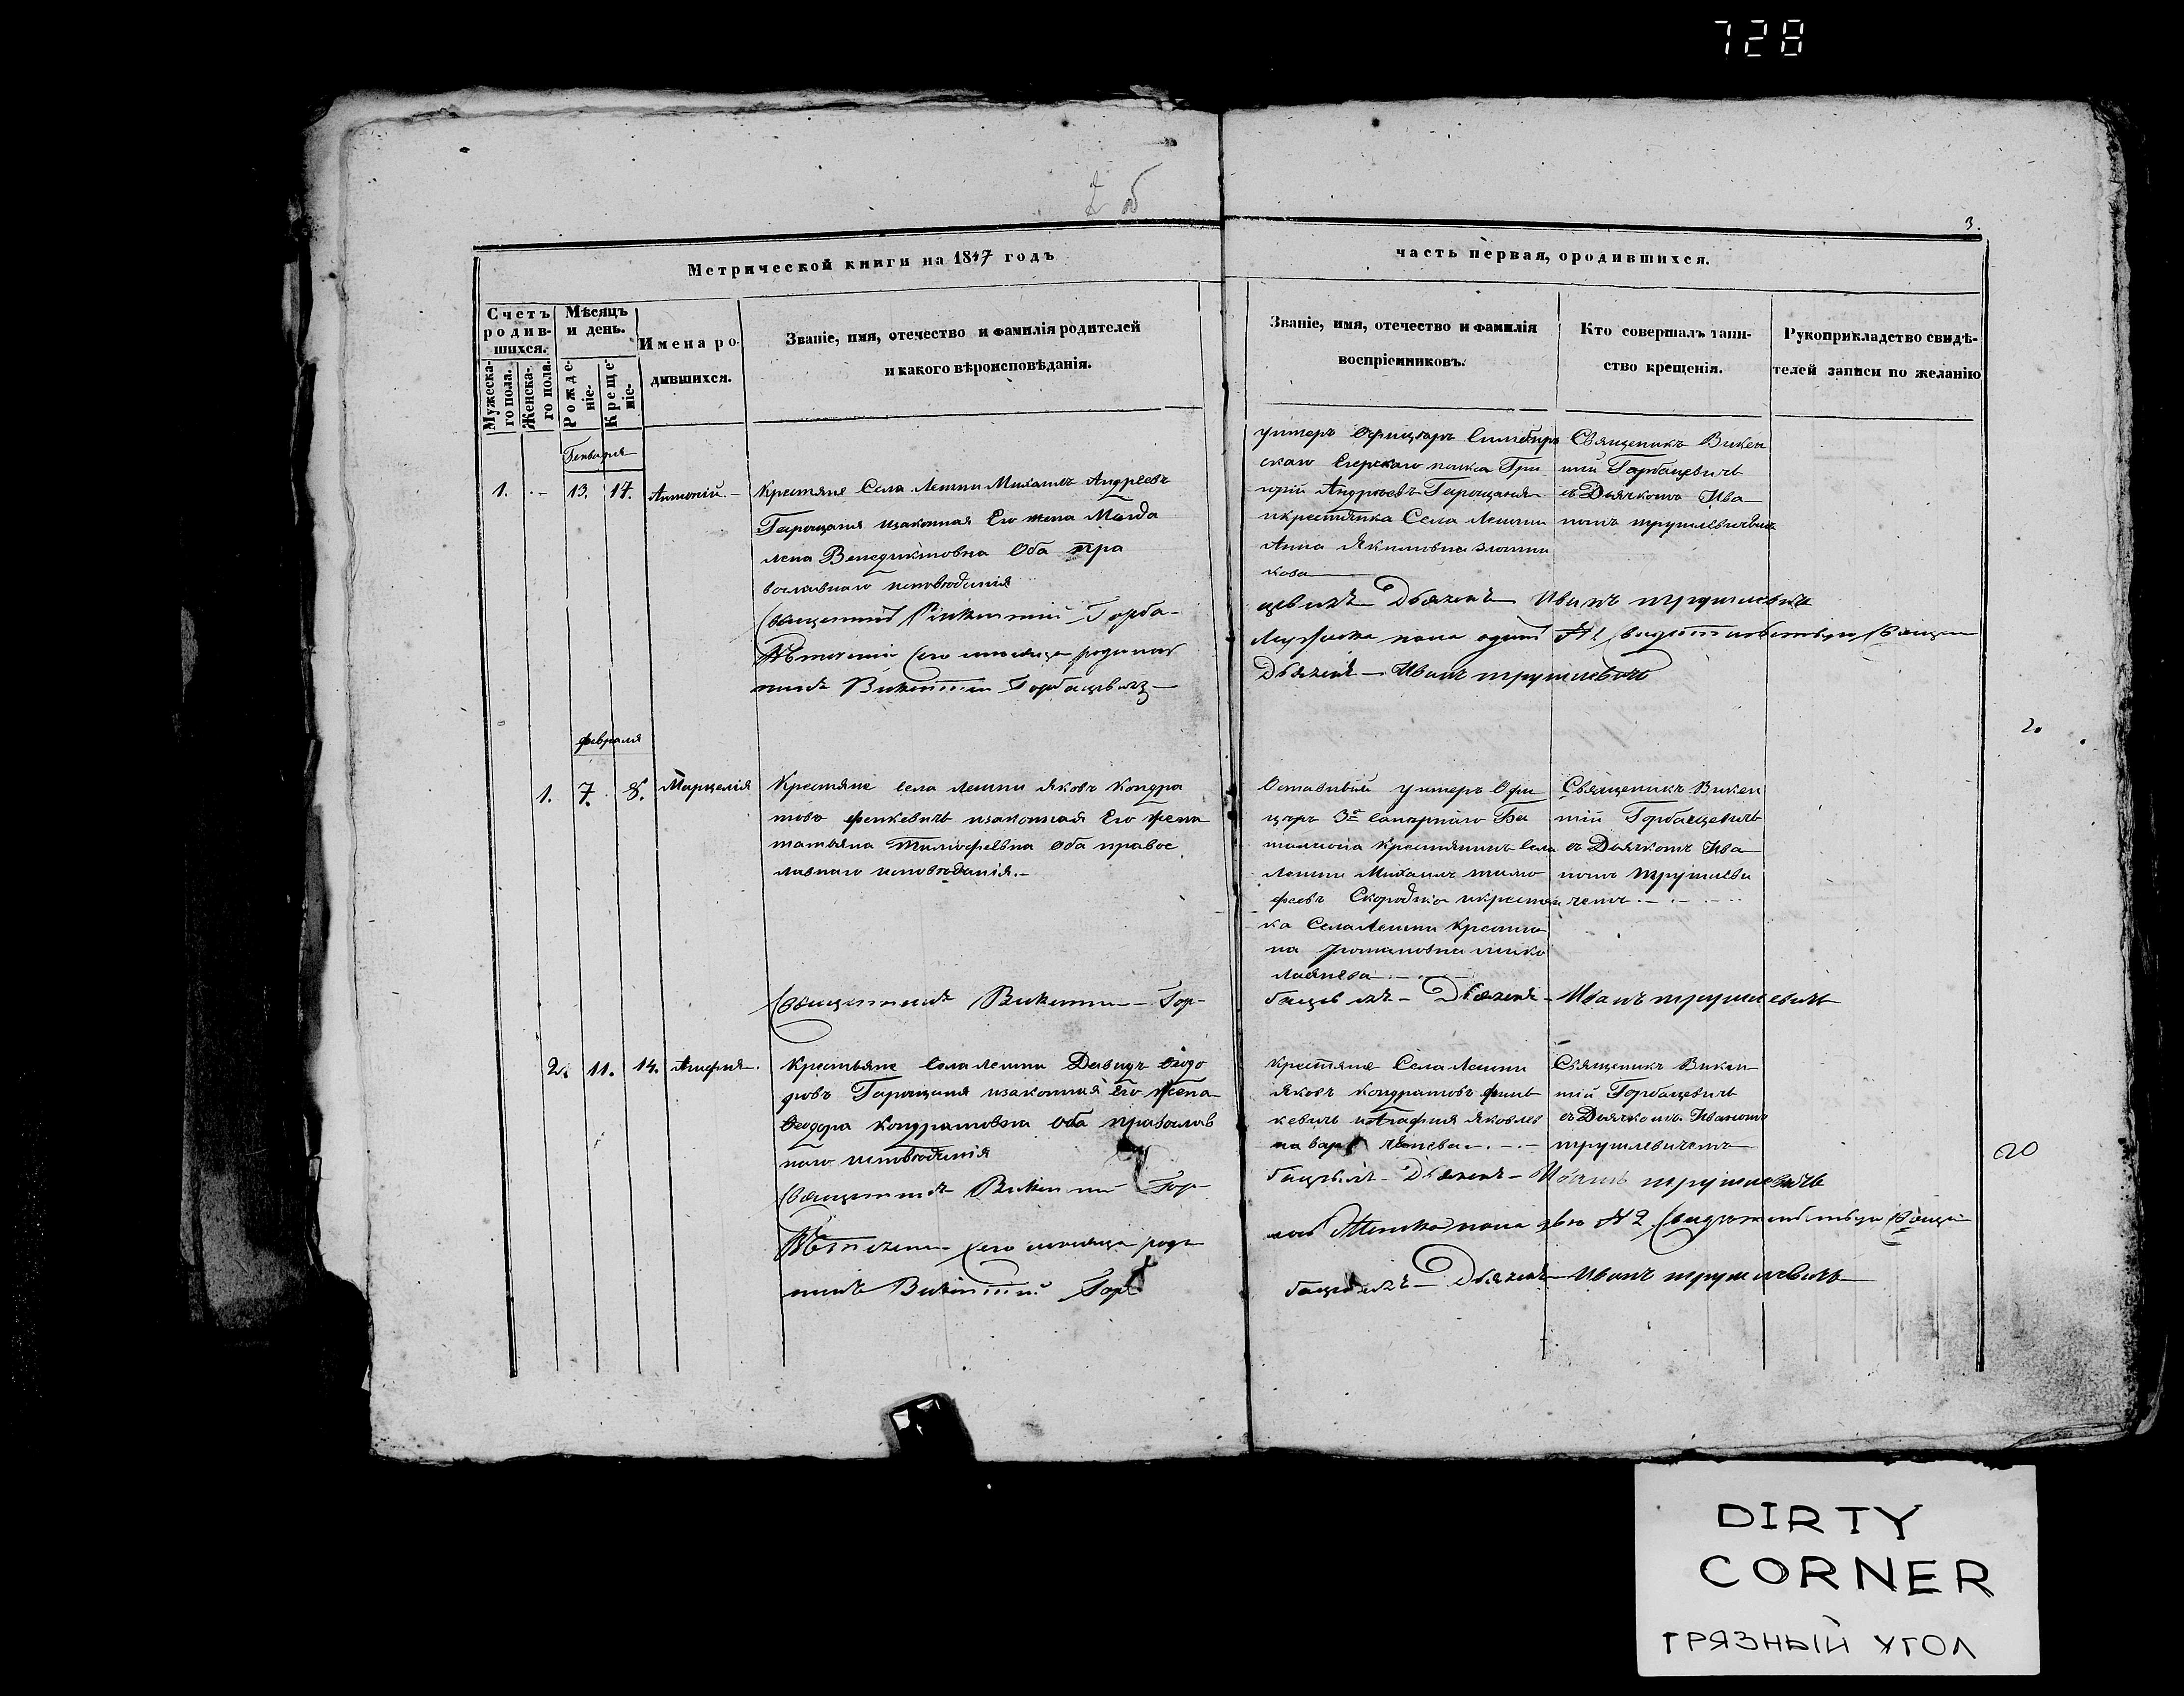 728
2 об
3.
Метрической книги на 1847 годъ
часть первая, ородившихся.
Счетъ родив-шихся.
Мужеска-го пола.
Женска-го пола.
Мѣсяцъ и день.
Рожде-ніе-
Креще-ніе-
Имена ро-
дившихся.
Званіе, имя, отечество и фамилія родителей
и какого вѣроисповѣданія.
Званіе, имя, отечество и фамилія
воспріемниковъ.
Кто совершалъ таин-
ство крещенія.
Рукоприкладство свидѣ-
телей записи по желанію
Генваря
1. - 13. 17. Антоній.-
Крестяне Села Лешни Михаилъ Андреевъ
Гарощаня изаконная Его жена Магда
лена Венедиктовна Оба пра
вославнаго исповѣданія
Священникъ Викентій Горба-
Въ теченіи сего месяца родилось
никъ Викентій Горбацевичъ
унтеръ Офицеръ Симбир
скаго Егерскаго полка Гри
горій Андреевъ Гарощаня
икрестянка Села Лешни
Анна Якимовна
кова
цевичъ Дьячекъ Иванъ трушлевичъ
Мужеска пола одинъ № 1 Священ
Дьячекъ Иванъ трушлевичъ
Священикъ Викен
тій Горбацевичъ
съ Дьячкомъ Ива
номъ трушлевичемъ
февраля
1. 7. 8. Марцелія
Крестяне села Лешни Яковъ Кондра
товъ фенкевичъ изаконная Его жена
татьяна Тимофеевна Оба правос
лавнаго исповѣданія.-
Священникъ Викентій Гор-
Оставный унтеръ Офи
церъ 3го Сапернаго Ба
таліона Крестянинъ Села
Лешни Михаилъ тимо
феевъ Скородко икрестян
ка Села Лешни Кристи
на романовна нико
лаенева
бацевичъ - Дьячекъ - Иванъ трушлевичъ
Священикъ Викен
тій Горбацевичъ
съ Дьячкомъ Ива
номъ Трушлеви
чемъ
20
2. 11. 14. Агафия.
Крестьяне Села Лешни Давидъ Фѣодо
ровъ Гарощаня изаконная Его жена
Феодора Кондратовна Оба православ
наго исповѣданія
Священникъ Викентій Гор-
Въ теченіи сего месяца роди
никъ Викентій Гор
крестяне Села Лешни
Яковъ кондратовъ фин
кевичъ иАгафия Яковлев
на
бацевичъ - Дьячекъ - Иванъ трушлевичъ
лось Женска пола двѣ № 2 Священ
бацевичъ - Дьячекъ - Иванъ трушлевичъ
Священикъ Викен
тій Горбацевичъ
съ Дьячкомъ Иваномъ
трушлевичемъ
20
DIRTY
CORNER
ГРЯЗНЫЙ УГОЛ